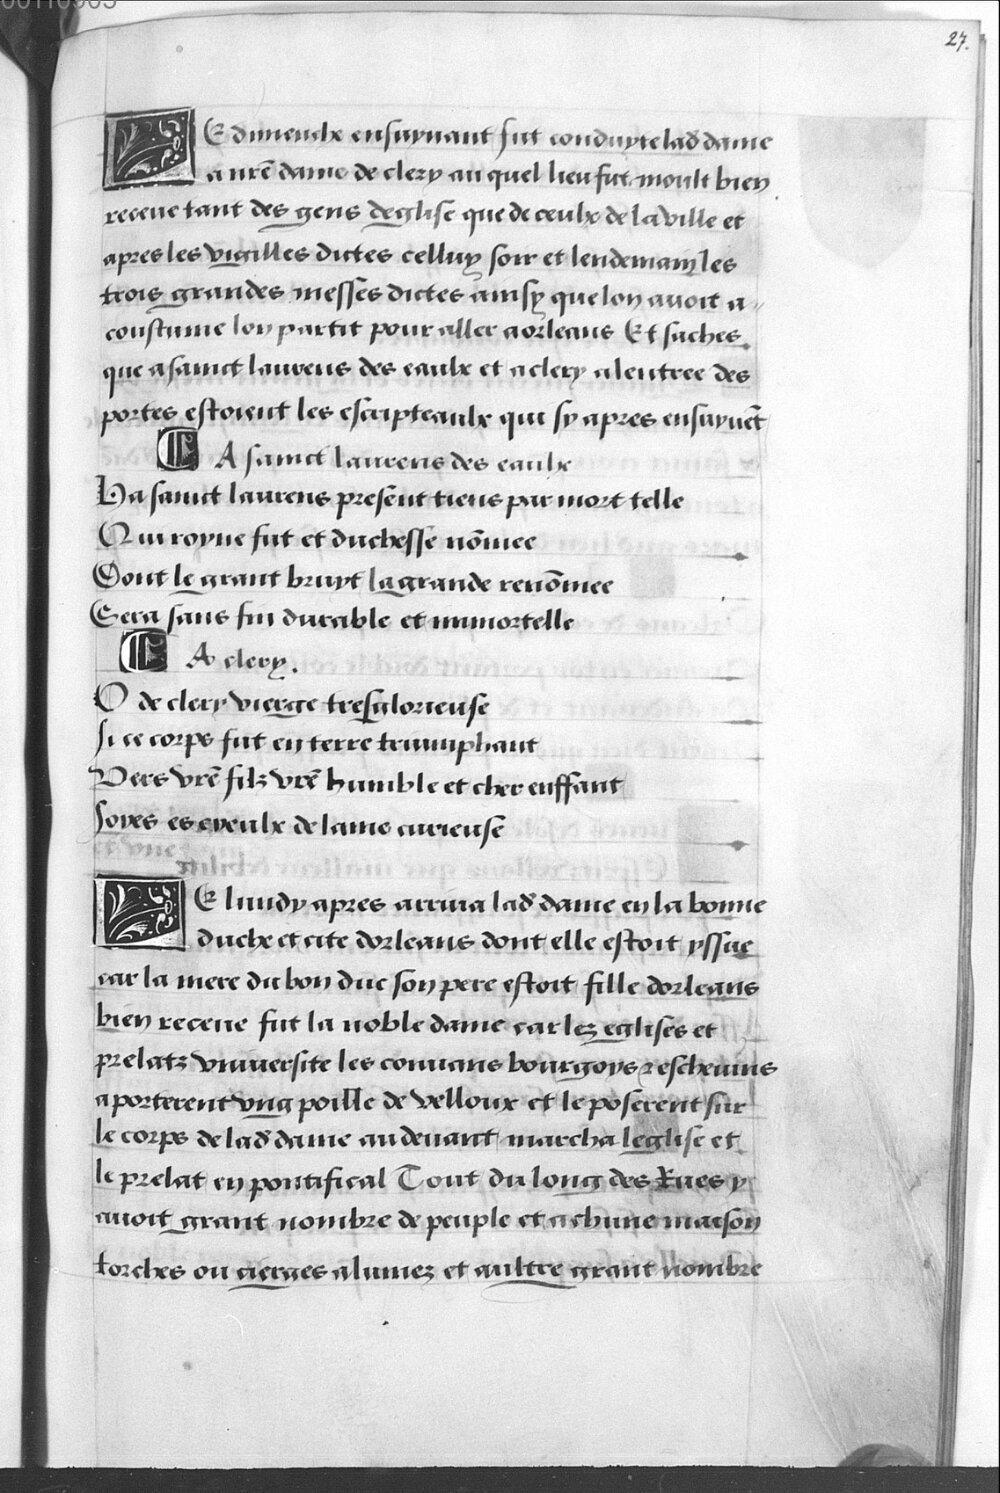 27.
LE dimenche ensuyuant fut conduyte lad dame
a nr̃e dame de clery au quel lieu fut moult bien
receue tant des gens deglise que de ceulx de la ville et
apres les vigilles dictes celluy soir et lendemain les
trois grandes messes dictes ainsy que lon auoit a
coustume lon partit pour aller a orleans Et saches
que a sainct laurens des eaulx et a clery a lentree des
portes estoient les escripteaulx qui sy apres ensuyuẽt
A sainct laurens des eaulx
Ha sainct laurens present tiens par mort telle
Qui royne fut et duchesse nõmee
Dont le grant bruyt la grande renõmee
Sera sans fin durable et immortelle
A clery.
O de clery vierge tresglorieuse
Si ce corps fut en terre triumphant
Vers vr̃e filz vr̃e humble et cher enffant
Soyes es eyeulx de lame curieuse
LE lundy apres arriua lad dame en la bonne
duche et cite dorleans dont elle estoit yssue
car la mere du bon duc son pere estoit fille dorleans
bien receue fut la noble dame car lez eglises et
prelatz vniuersite les conuans bourgoys ⁊ escheuins
aporterent vng poille de velloux et le poserent sur
le corps de lad dame au deuant marcha leglise et
le prelat en pontifical Tout du long des Rues y
auoit grant nombre de peuple et a chune maison
torches ou cierges alumez et aultre grant nombre